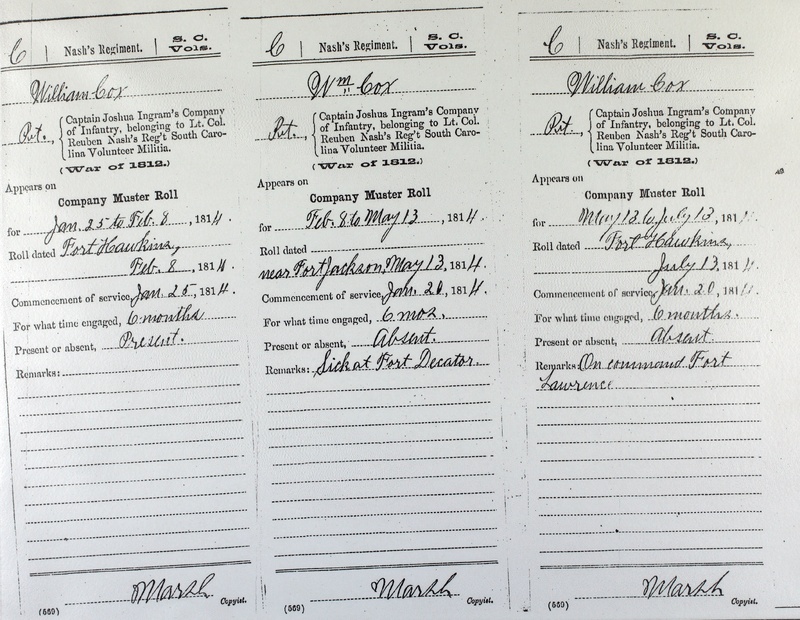 C | Nash's Regiment. | S. C. Vols.
William Cox
Pvt., { Captain Joshua Ingram's Company
of Infantry, belonging to Lt. Col.
Reuben Nash's Reg't South Caro-
lina Volunteer Militia.
(War of 1812.)
Appears on
Company Muster Roll
for Jan. 25 to Feb. 8, 1814.
Roll dated Fort Hawkins,
Feb. 8, 1814.
Commencement of service, Jan. 25, 1814.
For what time engaged, 6 months
Present or absent, Present.
Remarks:
Marsh
(559) Copyist.
C | Nash's Regiment. | S. C. Vols.
Wm Cox
Pvt., { Captain Joshua Ingram's Company
of Infantry, belonging to Lt. Col.
Reuben Nash's Reg't South Caro-
lina Volunteer Militia.
(War of 1812.)
Appears on
Company Muster Roll
for Feb. 8 to May 13, 1814.
Roll dated
near Fort Jackson, May 13, 1814.
Commencement of service, Jan. 20, 1814.
For what time engaged, 6 mos.
Present or absent, Absent.
Remarks: Sick at Fort Decator.
Marsh
(559) Copyist.
C | Nash's Regiment. | S. C. Vols.
William Cox
Pvt., { Captain Joshua Ingram's Company
of Infantry, belonging to Lt. Col.
Reuben Nash's Reg't South Caro-
lina Volunteer Militia.
(War of 1812.)
Appears on
Company Muster Roll
for May 13 to July 13, 1814.
Roll dated Fort Hawkins,
July 13, 1814.
Commencement of service, Jan. 20, 1814.
For what time engaged, 6 months.
Present or absent, Absent.
Remarks: On command Fort
Lawrence
Marsh
(559) Copyist.